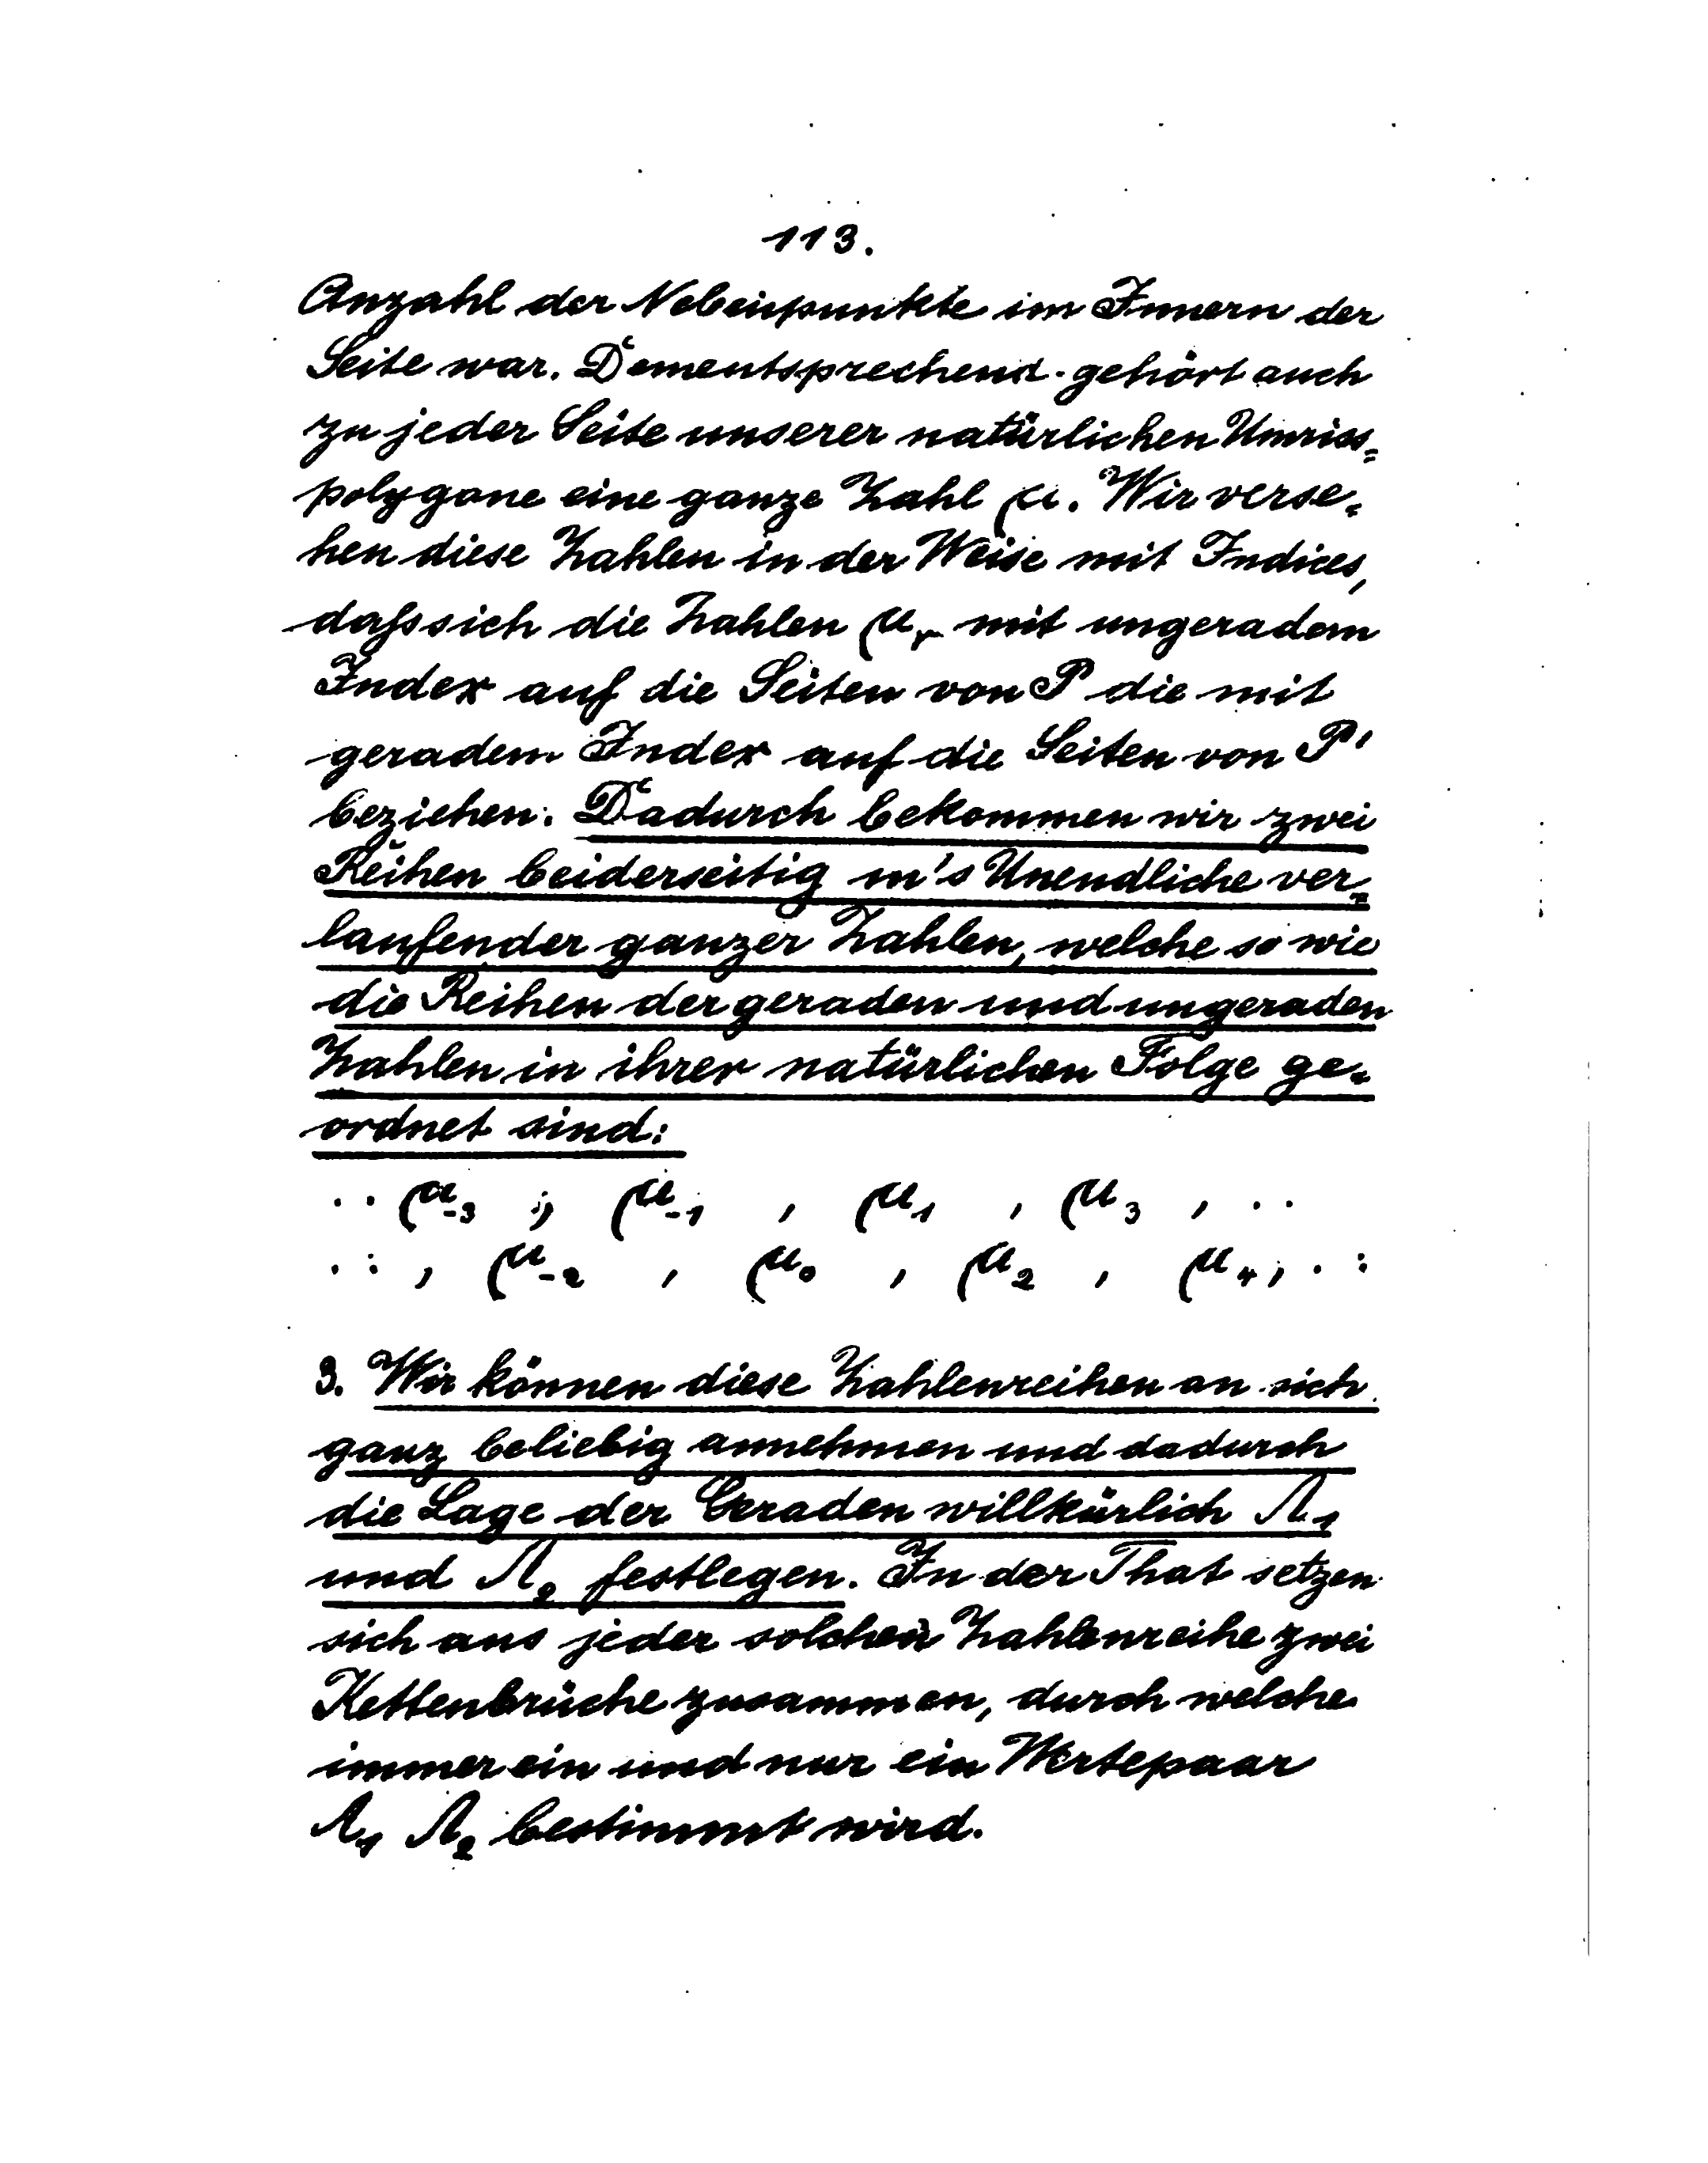 113.
Anzahl der Nebenpunkte im Innern der
Seite war. Dementsprechend gehört auch
zu jeder Seite unserer natürlichen Umriss=
polygone eine ganze Zahl μ. Wir verse=
hen diese Zahlen in der Weise mit Indices,
dass sich die Zahlen μᵣ mit ungeradem
Index auf die Seiten von P die mit
geradem Index auf die Seiten von P'
beziehen. Dadurch bekommen wir zwei
Reihen beiderseitig in's Unendliche ver=
laufender ganzer Zahlen, welche so wie
die Reihen der geraden und ungeraden
Zahlen in ihrer natürlichen Folge ge=
ordnet sind:
.. μ₋₃ , μ₋₁ , μ₁ , μ₃ , ..
.. , μ₋₂ , μ₀ , μ₂ , μ₄, ..
3. Wir können diese Zahlenreihen an sich
ganz beliebig annehmen und dadurch
die Lage der Geraden willkürlich Λ₁
und Λ₂ festlegen. In der That setzen
sich aus jeder solchen Zahlenreihe zwei
Kettenbrüche zusammen, durch welche
immer ein und nur ein Wertepaar
Λ₁ Λ₂ bestimmt wird.